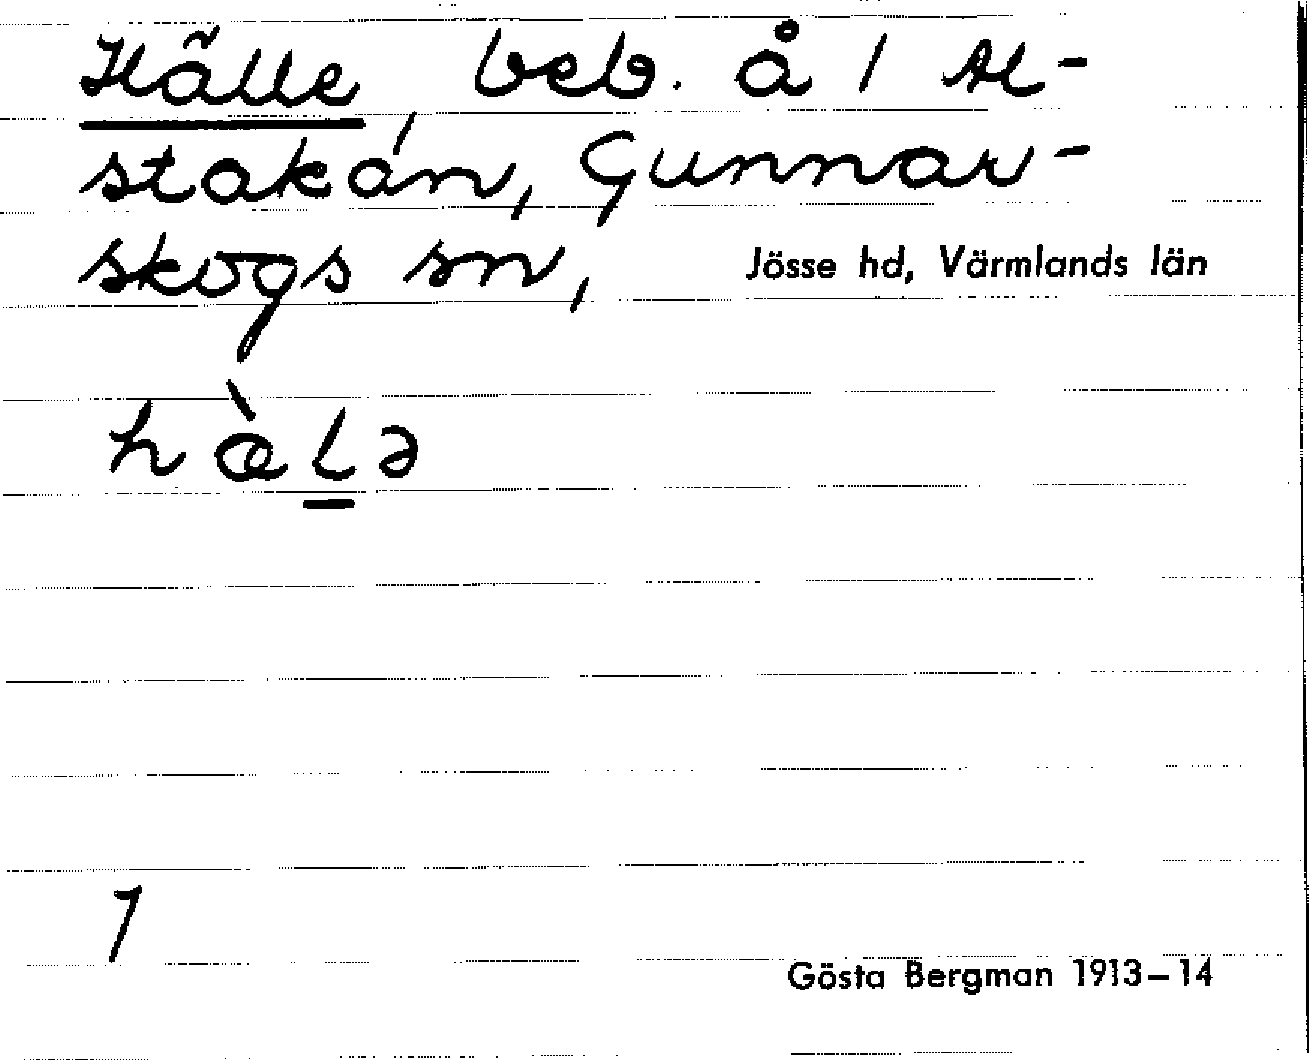 Hälle, beb. å 1 Al-
stakán, Gunnar-
skogs sn, Jösse hd, Värmlands län
hæ̀l̠ə
1
Gösta Bergman 1913–14